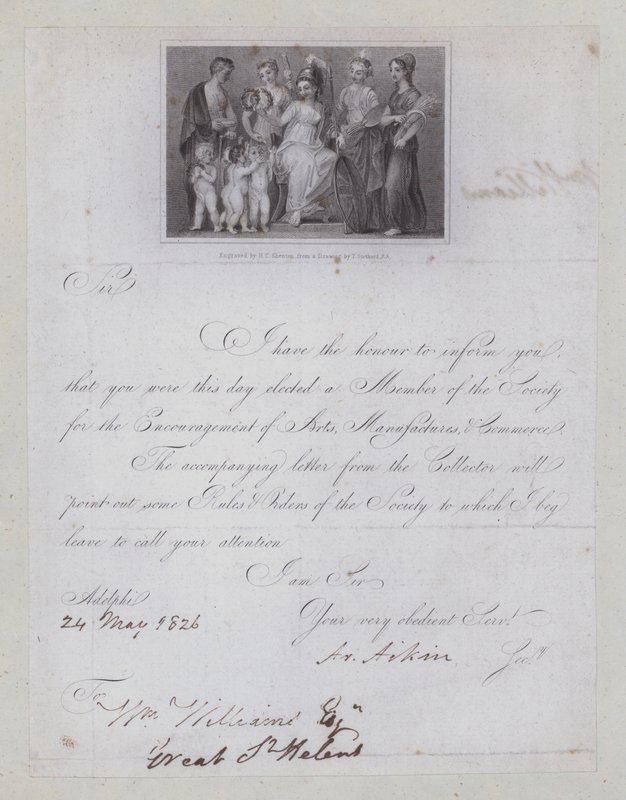 Engraved by H. C. Shenton, from a Drawing by T. Stothard, R.A.
Sir
I have the honour to inform you,
that you were this day elected a Member of the Society
for the Encouragement of Arts, Manufactures, & Commerce.
The accompanying letter from the Collector will
point out some Rules & Orders of the Society to which I beg
leave to call your attention
I am Sir
Adelphi
24 May 1826
Your very obedient Servt.
Ar. Aikin Secy.
To
Wm Williams Esqr
Great St Helens